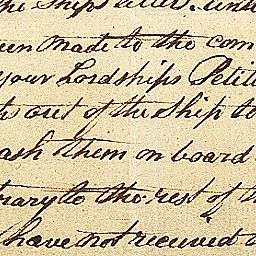 the Ships
een made to the com
your Lordships Petit
ts out of the Ship to
ash them on board
trary to the rest of th
have not received a